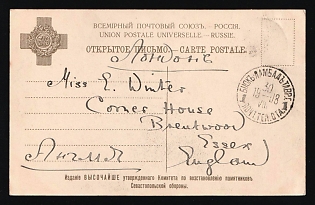 ВСЕМІРНЫЙ ПОЧТОВЫЙ СОЮЗЪ. РОССІЯ.
UNION POSTALE UNIVERSELLE. RUSSIE.
ОТКРЫТОЕ ПИСЬМО. CARTE POSTALE.
Лондонъ
Miss E. Winter
Corner House
Brentwood
Essex
Англія
England
Изданіе ВЫСОЧАЙШЕ утвержденнаго Комитета по возстановленію памятниковъ
Севастопольской обороны.